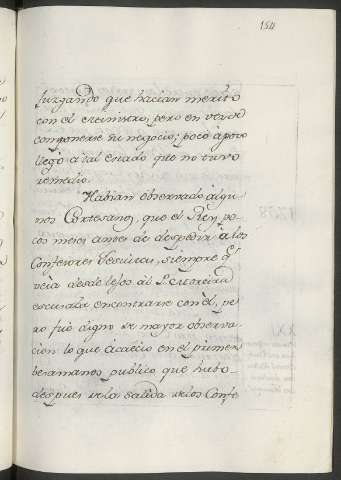 154
juzgando que hacian merito
con el exministro; pero en vez de
componerse su negocio; pocò à poco
llegò à tal estado que no tuvo
remedio.
Habian observado àlgu-
nos Cortesanos, que el Rey po-
cos meses àntes de despedir à los
Confesores Jesuitas, siempre q.^e
veia desde lejos al P.
escusaba encontrarse con èl, pe-
ro fuè digno de mayor observa-
cion lo que àcaeciò en el primer
besamanos publico que hubo
despues de la salida de los Confe